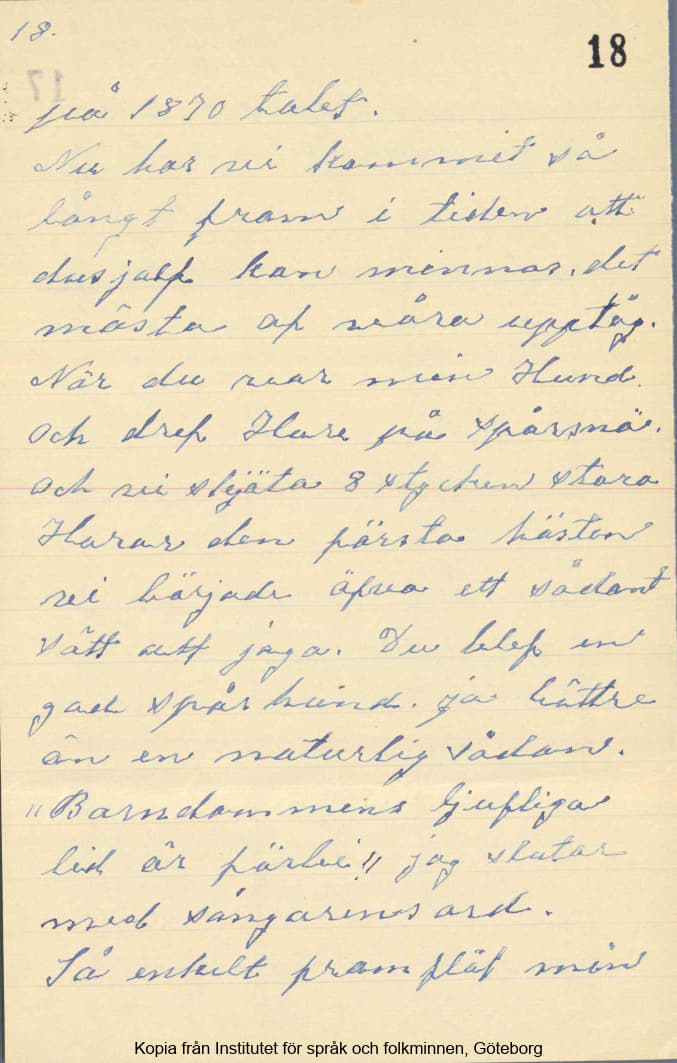 18.
18
17
på 1870 talet.
Nu har vi kommit så
långt fram i tiden att
du sjalf kan minnas, det
mästa af våra upptåg.
När du var min Hund
och dref Hare på spårsnö.
och vi skjöta 8 stycken stora
Harar den första hästen
vi började öfva ett sådant
sätt att jaga. Du blef en
god spår hund. ja bättre
än en naturlig sådan.
"Barndommens ljufliga
tid är förbi" jag slutar
med sångarens ord.
Så enkelt framflöt min
Kopia från Institutet för språk och folkminnen, Göteborg